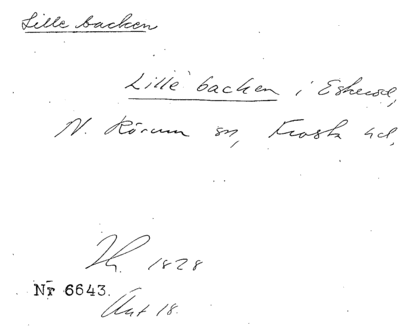 Lille backen
Lille backen i Eskerod,
N. Rörum sn, Frosta hd,
1828
Nr 6643.
Akt 18.